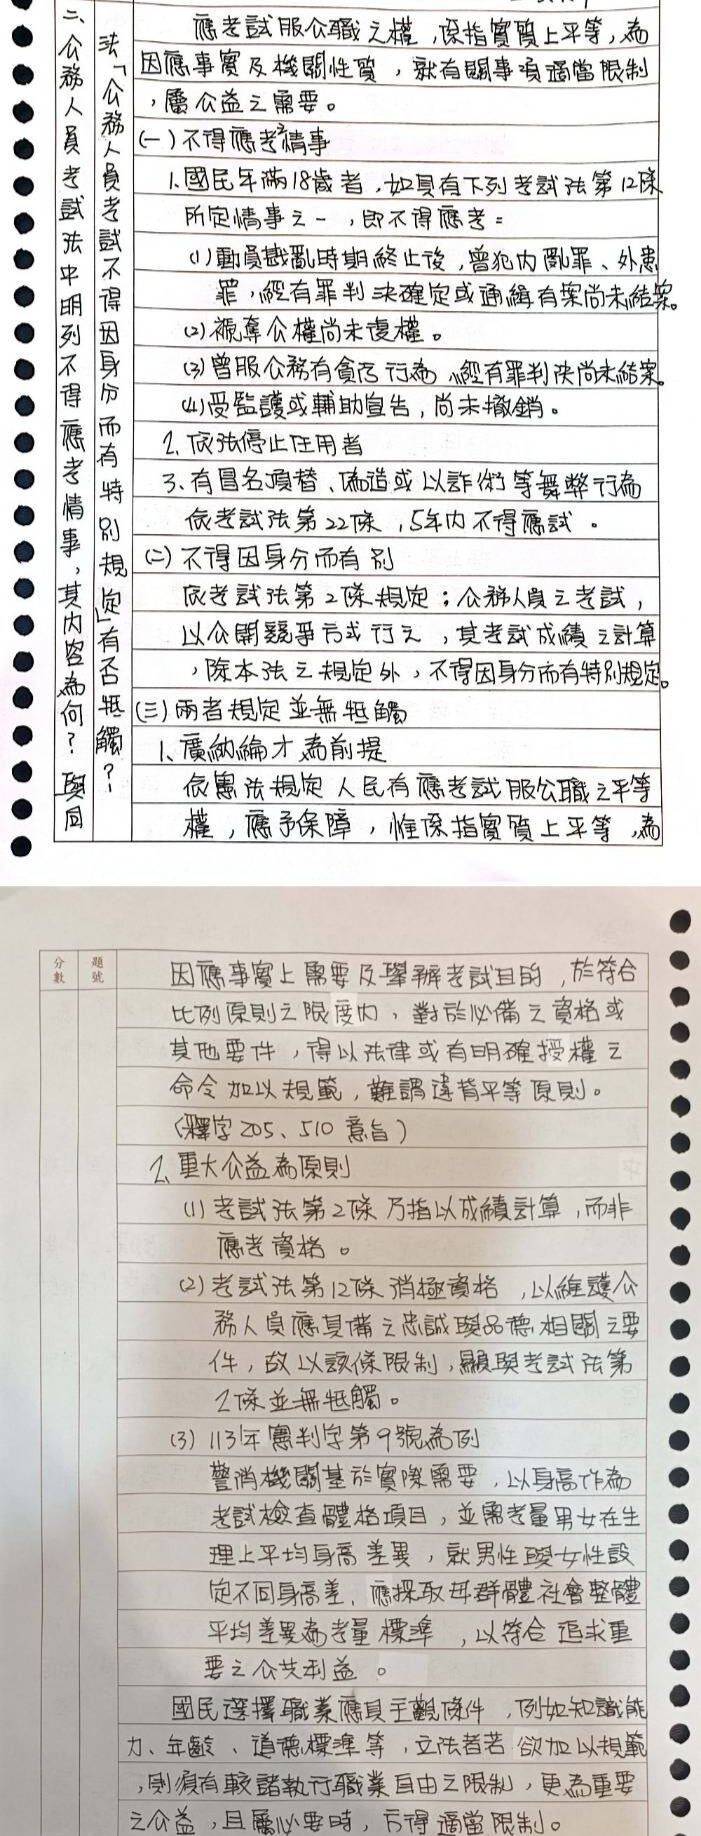 二、公務人員考試法中明列不得應考情事，其內容為何？與同
法「公務人員考試不得因身分而有特別規定」有否牴觸？
應考試服公職之權，係指實質上平等，為
因應事實及機關性質，就有關事項適當限制
，屬公益之需要。
(一)不得應考情事
1.國民年滿18歲者，如具有下列考試法第12條
所定情事之一，即不得應考：
(1)動員戡亂時期終止後，曾犯內亂罪、外患
罪，經有罪判決確定或通緝有案尚未結案。
(2)褫奪公權尚未復權。
(3)曾服公務有貪污行為，經有罪判決尚未結案。
(4)受監護或輔助宣告，尚未撤銷。
2.依法停止任用者
3.有冒名頂替、偽造或以詐術等舞弊行為
依考試法第22條，5年內不得應試。
(二)不得因身分而有別
依考試法第2條規定；公務人員之考試，
以公開競爭方式行之，其考試成績之計算
，除本法之規定外，不得因身分而有特別規定。
(三)兩者規定並無牴觸
1.廣納綸才為前提
依憲法規定人民有應考試服公職之平等
權，應予保障，惟係指實質上平等，為
分數
題號
因應事實上需要及舉辦考試目的，於符合
比例原則之限度內，對於必備之資格或
其他要件，得以法律或有明確授權之
命令加以規範，難謂違背平等原則。
(釋字205、510意旨)
2.重大公益為原則
(1)考試法第2條乃指以成績計算，而非
應考資格。
(2)考試法第12條消極資格，以維護公
務人員應具備之忠誠與品德相關之要
件，故以該條限制，顯與考試法第
2條並無牴觸。
(3)113年憲判字第9號為例
警消機關基於實際需要，以身高作為
考試檢查體格項目，並需考量男女在生
理上平均身高差異，就男性與女性設
定不同身高差，應採取母群體社會整體
平均差異為考量標準，以符合追求重
要之公共利益。
國民選擇職業應具主觀條件，例如知識能
力、年齡、道德標準等，立法者若欲加以規範
，則須有較諸執行職業自由之限制，更為重要
之公益，且屬必要時，方得適當限制。